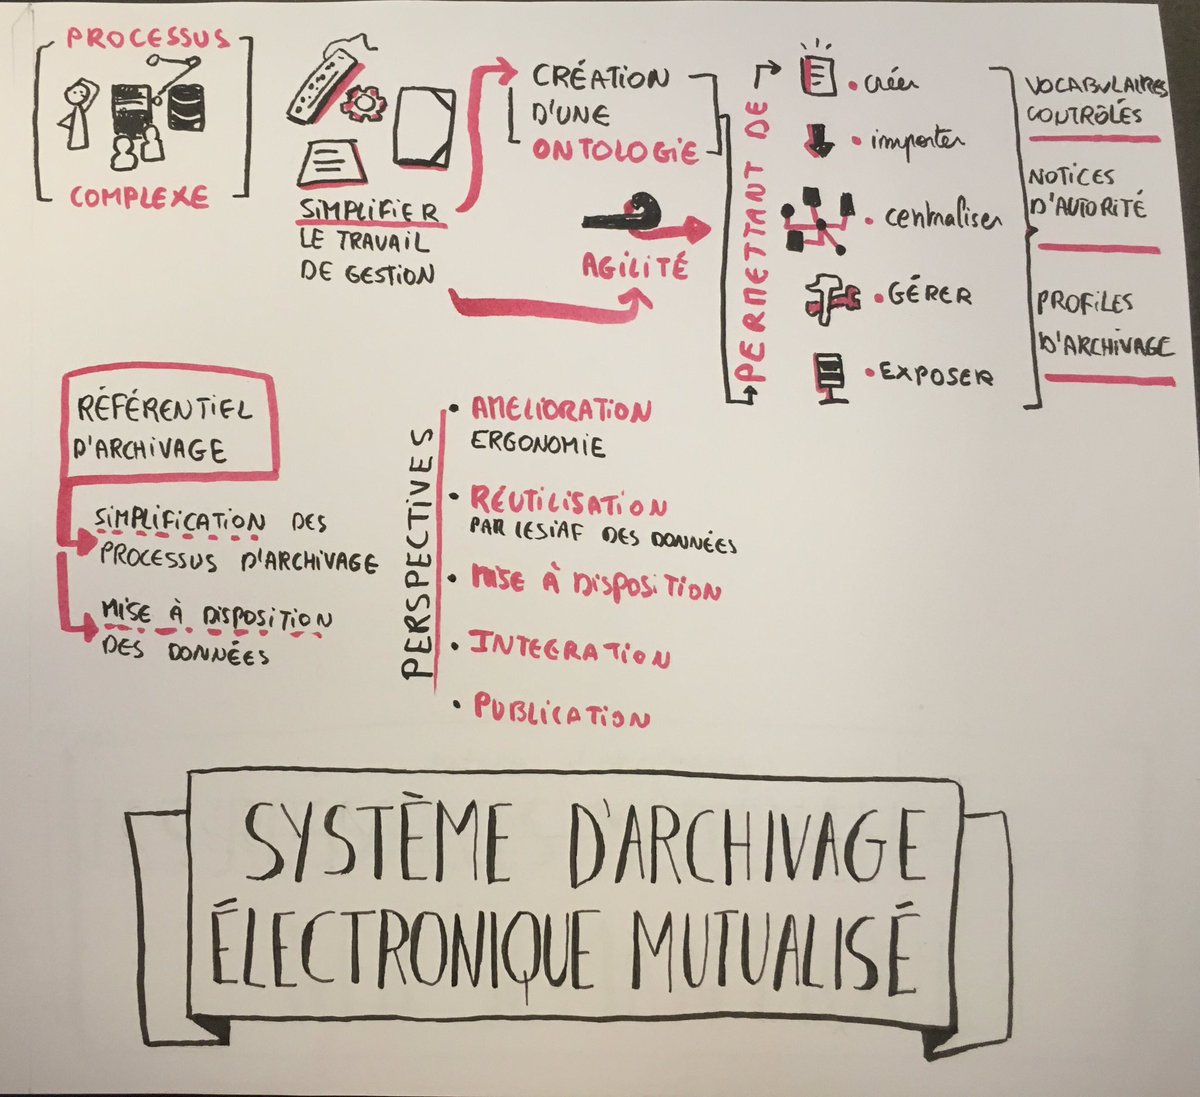 PROCESSUS
COMPLEXE
SIMPLIFIER
LE TRAVAIL
DE GESTION
CRÉATION
D'UNE
ONTOLOGIE
AGILITÉ
PERMETTANT DE
• créer
• importer
• centraliser
• GÉRER
• EXPOSER
VOCABULAIRES
CONTRÔLÉS
NOTICES
D'AUTORITÉ
PROFILES
D'ARCHIVAGE
RÉFÉRENTIEL
D'ARCHIVAGE
SIMPLIFICATION DES
PROCESSUS D'ARCHIVAGE
MISE À DISPOSITION
DES DONNÉES
PERSPECTIVES
• AMELIORATION
ERGONOMIE
• RÉUTILISATION
PAR LESIAF DES DONNÉES
• MISE À DISPOSITION
• INTEGRATION
• PUBLICATION
SYSTÈME D'ARCHIVAGE
ÉLECTRONIQUE MUTUALISÉ